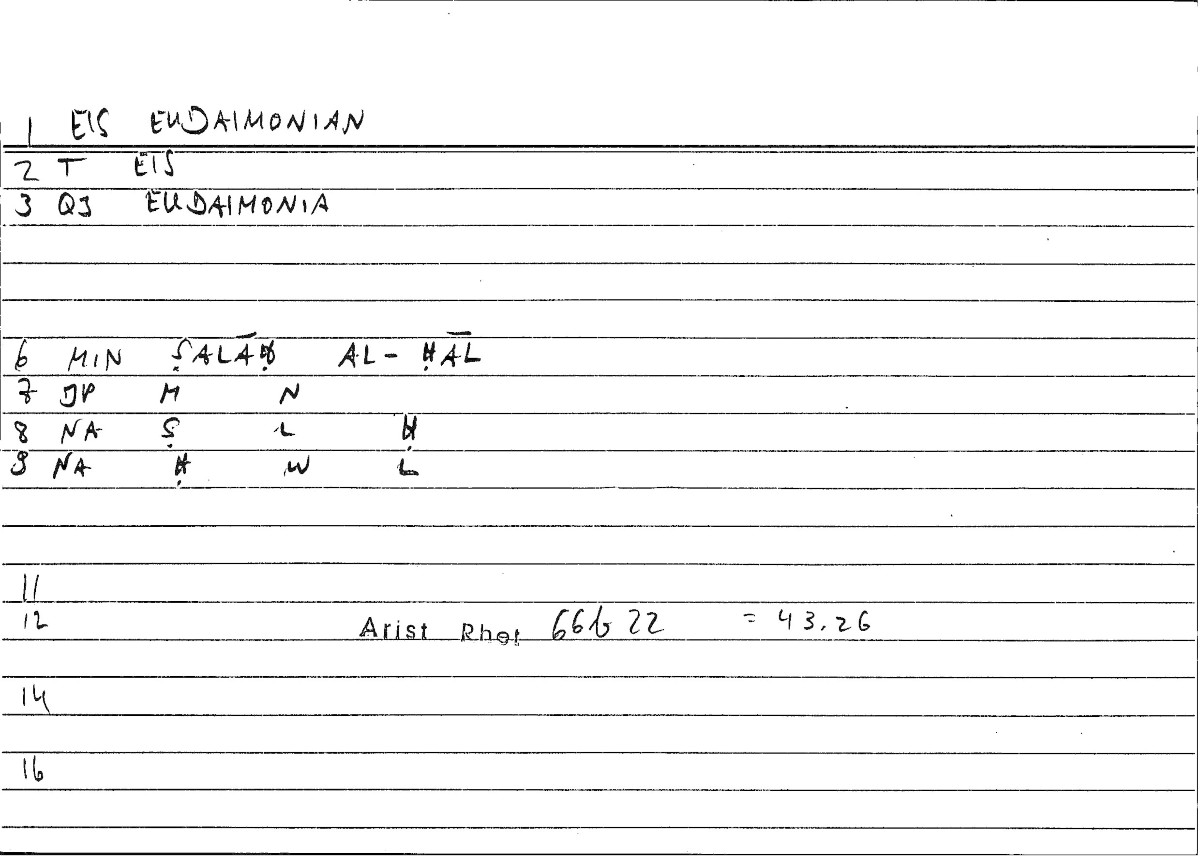 1 EIS EUDAIMONIAN
2 T EIS
3 QJ EUDAIMONIA
6 MIN ṢALĀḤ AL-ḤĀL
7 JP M N
8 NA Ṣ L Ḥ
9 NA Ḥ W L
11
12 Arist Rhet 66b22 = 43.26
14
16